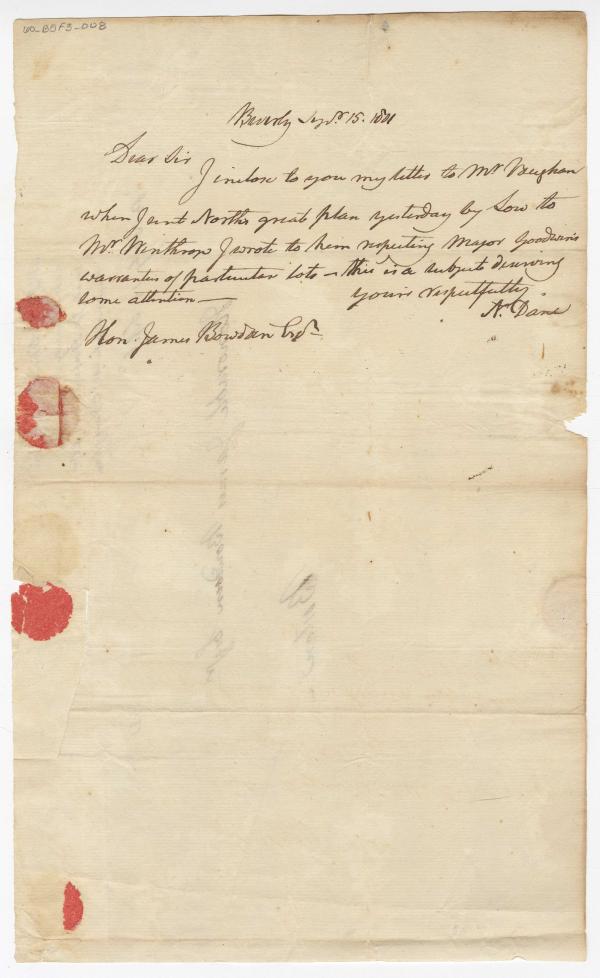 Beverly Sept. 15. 1801
Dear Sir
I inclose to you my letter to Mr Vaughan
when I sent North's great plan yesterday by Low to
Mr Winthrop I wrote to him respecting Major Goodwin's
warranties of particular lots – this is a subject deserving
some attention – yours respectfully
N. Dane
Hon. James Bowdoin Esqr.
Honorable James Bowdoin Esqr
Boston